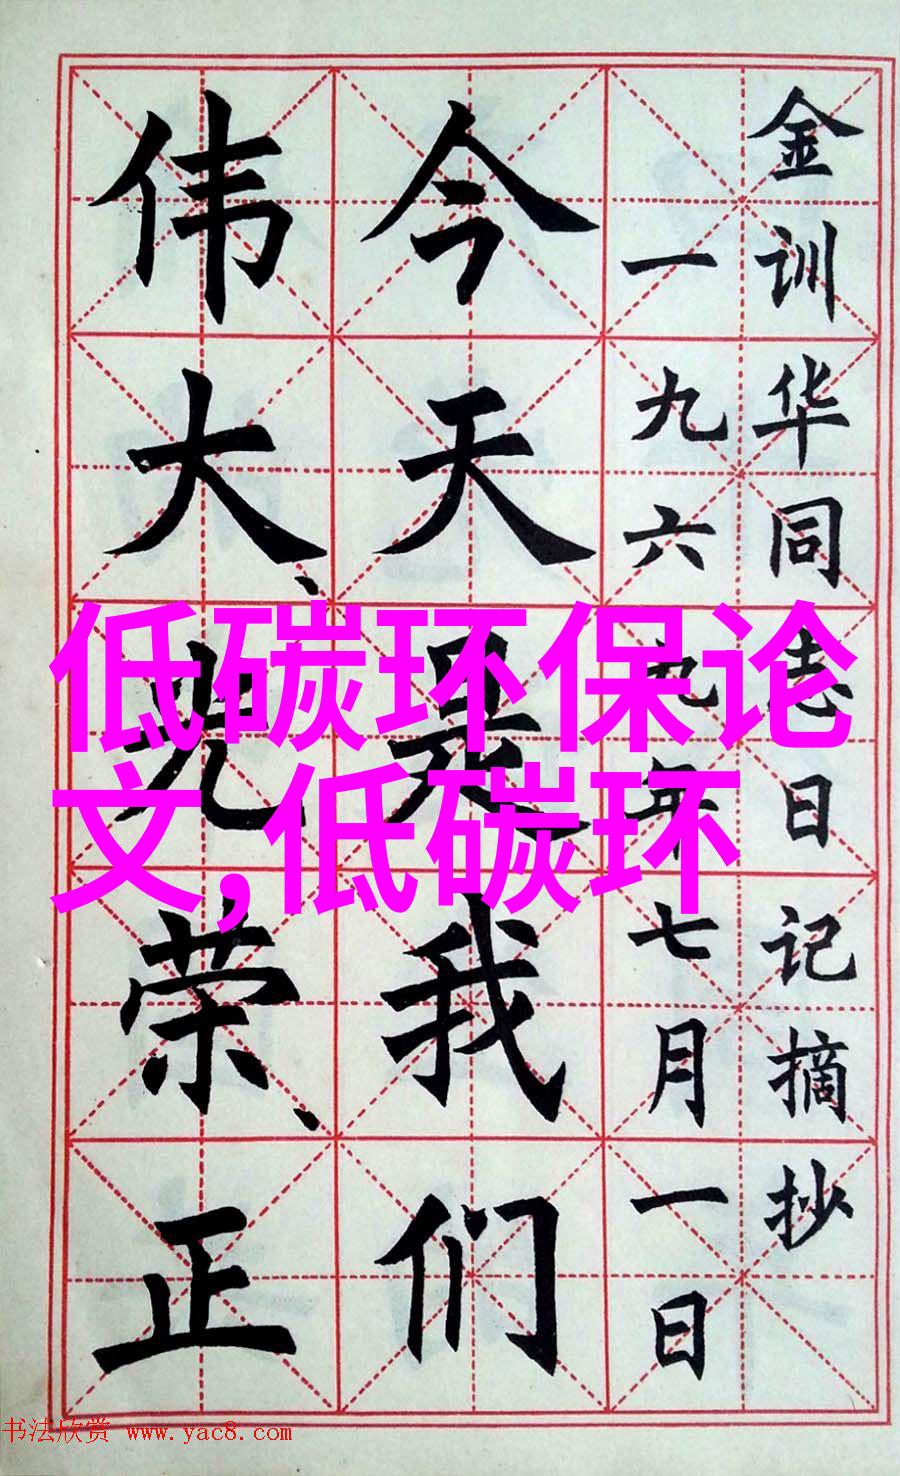 金训华同志日记摘抄
一九六九年七月一日
今天是我们
伟大、光荣、正
低碳环保论
文,低碳环
书法欣赏 www.yac8.com